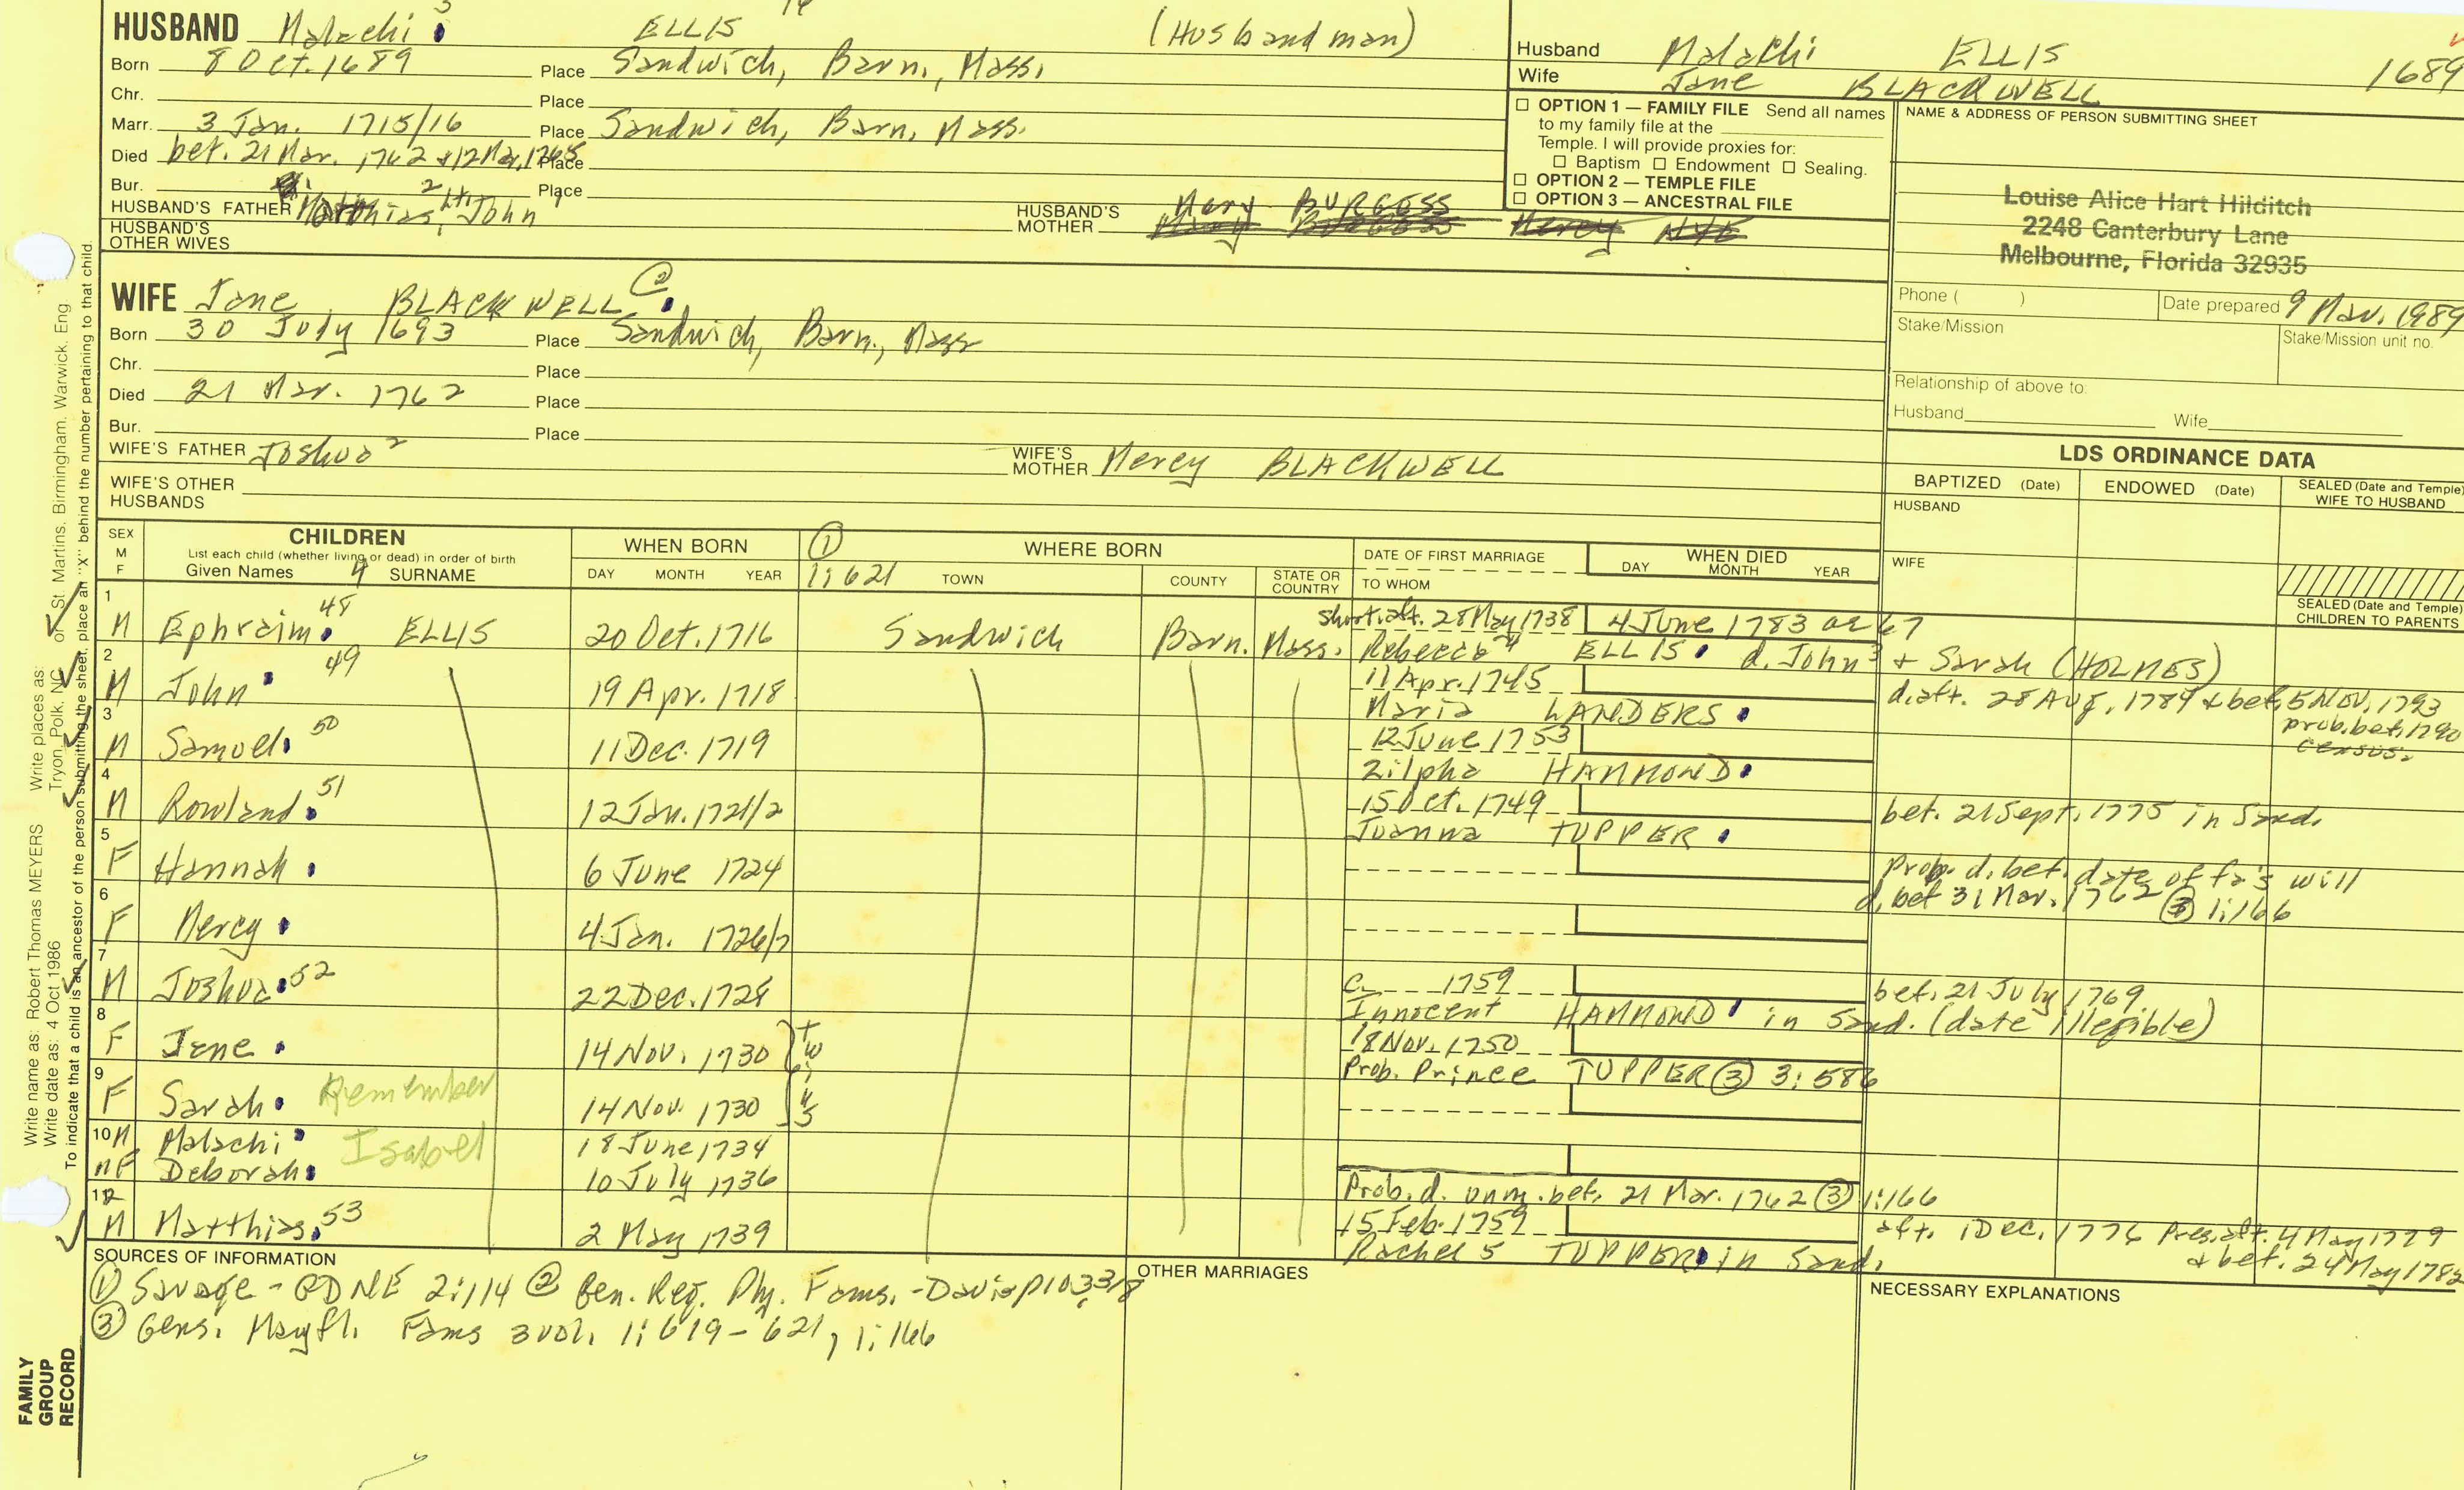 HUSBAND Malachi 3 ELLIS 14 (Husbandman)
Born 8 Oct. 1689 Place Sandwich, Barn., Mass.
Chr. Place
Marr. 3 Jan. 1715/16 Place Sandwich, Barn, Mass.
Died bet. 21 Mar. 1762 + 12 Mar, 1765 Place
Bur. Place
HUSBAND'S FATHER Matthias, 2 Lt. John
HUSBAND'S MOTHER Mary BURGESS
Mary BURGESS Mercy NYE
HUSBAND'S OTHER WIVES
WIFE Jane BLACKWELL 2
Born 30 July 1693 Place Sandwich, Barn., Mass
Chr. Place
Died 21 Mar. 1762 Place
Bur. Place
WIFE'S FATHER Joshua 2
WIFE'S MOTHER Mercy BLACKWELL
WIFE'S OTHER HUSBANDS
Husband Malachi ELLIS 1689
Wife Jane BLACKWELL
☐ OPTION 1 — FAMILY FILE Send all names
to my family file at the
Temple. I will provide proxies for:
☐ Baptism ☐ Endowment ☐ Sealing.
☐ OPTION 2 — TEMPLE FILE
☐ OPTION 3 — ANCESTRAL FILE
NAME & ADDRESS OF PERSON SUBMITTING SHEET
Louise Alice Hart Hilditch
2248 Canterbury Lane
Melbourne, Florida 32935
Phone ( ) Date prepared 9 Mar. 1989
Stake/Mission Stake/Mission unit no.
Relationship of above to:
Husband Wife
LDS ORDINANCE DATA
BAPTIZED (Date) ENDOWED (Date) SEALED (Date and Temple) WIFE TO HUSBAND
HUSBAND
WIFE
SEALED (Date and Temple) CHILDREN TO PARENTS
SEX M F
CHILDREN
List each child (whether living or dead) in order of birth
Given Names 4 SURNAME
WHEN BORN
DAY MONTH YEAR
① 1:621
WHERE BORN
TOWN COUNTY STATE OR COUNTRY
DATE OF FIRST MARRIAGE
TO WHOM
WHEN DIED
DAY MONTH YEAR
1 M Ephraim 48 ELLIS 20 Oct. 1716 Sandwich Barn. Mass. short. aft. 28 May 1738 4 June 1783 ae 67
Rebecca 4 ELLIS d. John 3 + Sarah (HOLMES)
2 M John 49 19 Apr. 1718 11 Apr. 1745 d. aft. 28 Aug. 1784 + bet. 5 Nov. 1793
Maria LANDERS prob. bet. 1790 census.
3 M Samuel 50 11 Dec. 1719 12 June 1753
Zilpha HAMMOND
4 M Rowland 51 12 Jan. 1721/2 15 Oct. 1749 bet. 21 Sept. 1775 in Sand.
Joanna TUPPER
5 F Hannah 6 June 1724 Prob. d. bet. date of fa's will
d. bet 31 Mar. 1762 ③ 1:166
6 F Mercy 4 Jan. 1726/7
7 M Joshua 52 22 Dec. 1728 c 1759 bet. 21 July 1769
Innocent HAMMOND in Sand. (date illegible)
8 F Jane 14 Nov. 1730 twins 18 Nov. 1750
Prob. Prince TUPPER ③ 3:586
9 F Sarah Remember 14 Nov. 1730
10 M Malachi Isabel 18 June 1734
11 F Deborah 10 July 1736
Prob. d. unm. bet. 21 Mar. 1762 ③ 1:166
12 M Matthias 53 2 May 1739 15 Feb. 1759 aft. 1 Dec. 1776 Pres. aft. 4 May 1779
Rachel 5 TUPPER in Sand. + bet. 24 May 1782
SOURCES OF INFORMATION
① Savage - GDNE 2:114 ② Gen. Reg. Ply. Fams. - Davis p103
③ Gens. Mayfl. Fams 3 vol. 1:619-621, 1:166
OTHER MARRIAGES
NECESSARY EXPLANATIONS
Write name as: Robert Thomas MEYERS Write places as: Tryon, Polk, NC or St. Martins, Birmingham, Warwick, Eng
Write date as: 4 Oct 1986
To indicate that a child is an ancestor of the person submitting the sheet, place an "X" behind the number pertaining to that child.
FAMILY GROUP RECORD